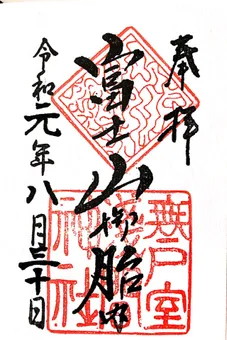 奉拝
富士山御胎内
令和元年八月三十日
無戸室
神社